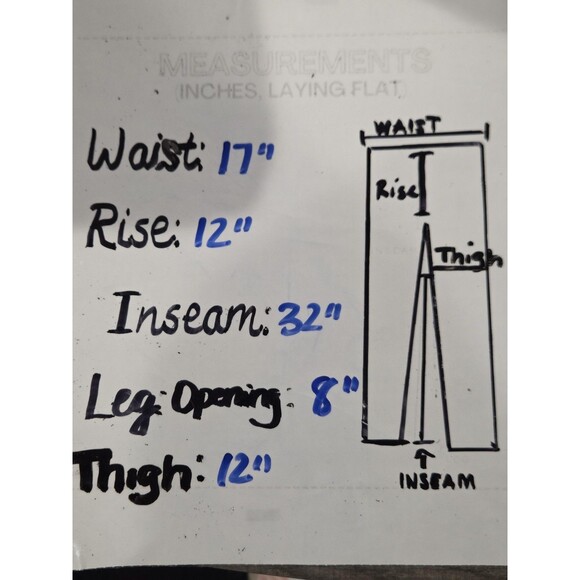 MEASUREMENTS
(INCHES, LAYING FLAT)
Waist: 17"
Rise: 12"
Inseam: 32"
Leg: Opening: 8"
Thigh: 12"
WAIST
Rise
Thigh
INSEAM